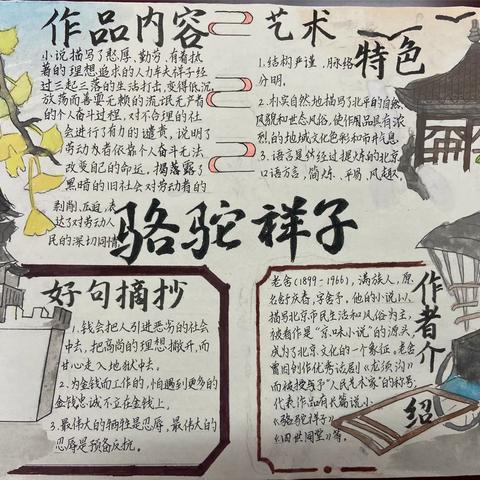 作品内容
小说描写了憨厚、勤劳、有着执
著的理想追求的人力车夫祥子经
过三起三落的生活打击,变得低沉
放荡而甚耍无赖的流氓无产者
的个人奋斗过程,对不合理的社
会进行了有力的谴责,说明了
劳动者依靠个人奋斗无法
改变自己的命运,揭露了
黑暗的旧社会对劳动者的
剥削、压迫,表
达了对劳动人
民的深切同情
艺术
特色
1.结构严谨,脉络
分明。
2.朴实自然地描写了北平的自然
风貌和世态风俗,使作品具有浓
烈的地域文化色彩和市井气息
3.语言是含经过提炼的北京
口语方言,简炼、平易、风趣
骆驼祥子
好句摘抄
1.钱会把人引进恶劣的社会
中去,把高尚的理想撇开,而
甘心走入地狱中去。
2.为金钱而工作的,怕遇到更多的
金钱,忠诚不立在金钱上。
3.最伟大的牺牲是忍辱,最伟大的
忍辱是预备反抗。
作者介绍
老舍(1899-1966),满族人,原
名舒庆春,字舍予,他的小说以
描写北京市民生活和风俗为主,
被看作是“京味小说”的源头
成为了北京文化的一个象征,老舍
曾因创作优秀话剧《龙须沟》
而被授予“人民艺术家”的称号,
代表作品有长篇小
《骆驼祥子》
《四世同堂》等。